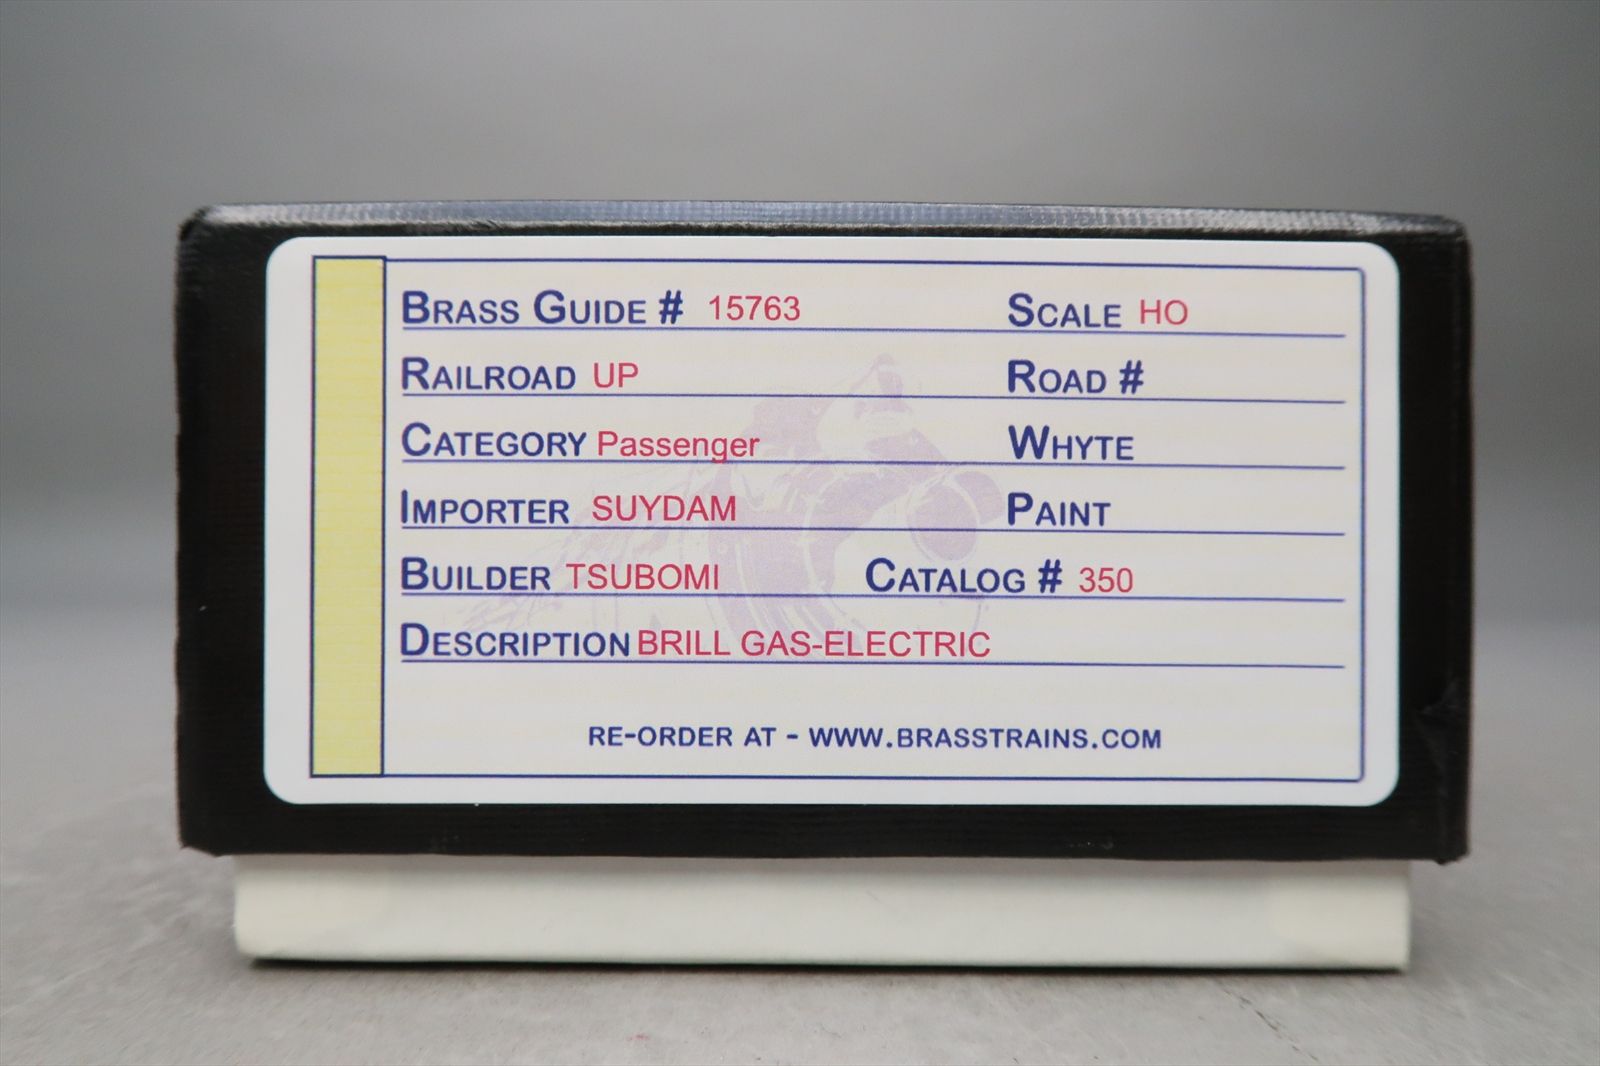 BRASS GUIDE # 15763 SCALE HO
RAILROAD UP ROAD #
CATEGORY Passenger WHYTE
IMPORTER SUYDAM PAINT
BUILDER TSUBOMI CATALOG # 350
DESCRIPTION BRILL GAS-ELECTRIC
RE-ORDER AT - WWW.BRASSTRAINS.COM